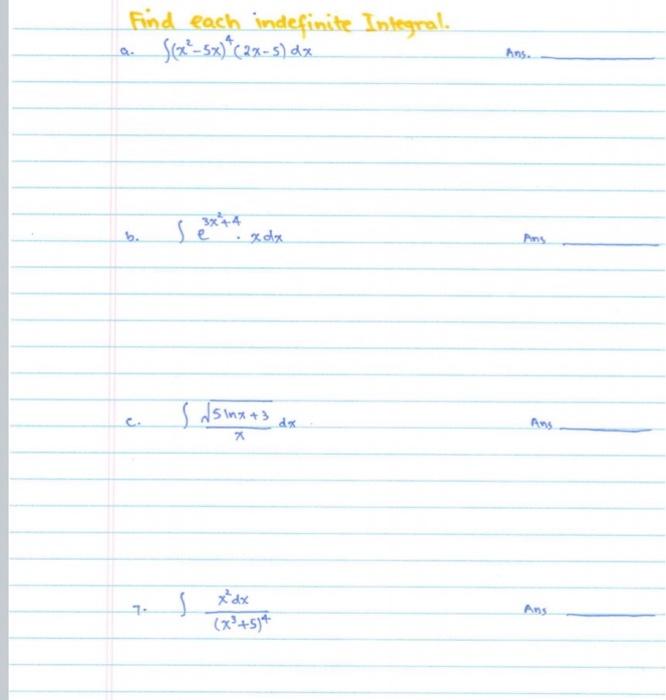 Find each indefinite Integral.
a. ∫(x²-5x)⁴(2x-5) dx Ans. ________
b. ∫ e^(3x²+4) · x dx Ans ________
c. ∫ √(5lnx+3)/x dx Ans ________
7. ∫ x²dx/(x³+5)⁴ Ans ________